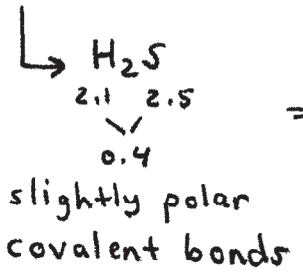 H₂S
2.1 2.5
0.4
=
slightly polar
covalent bonds